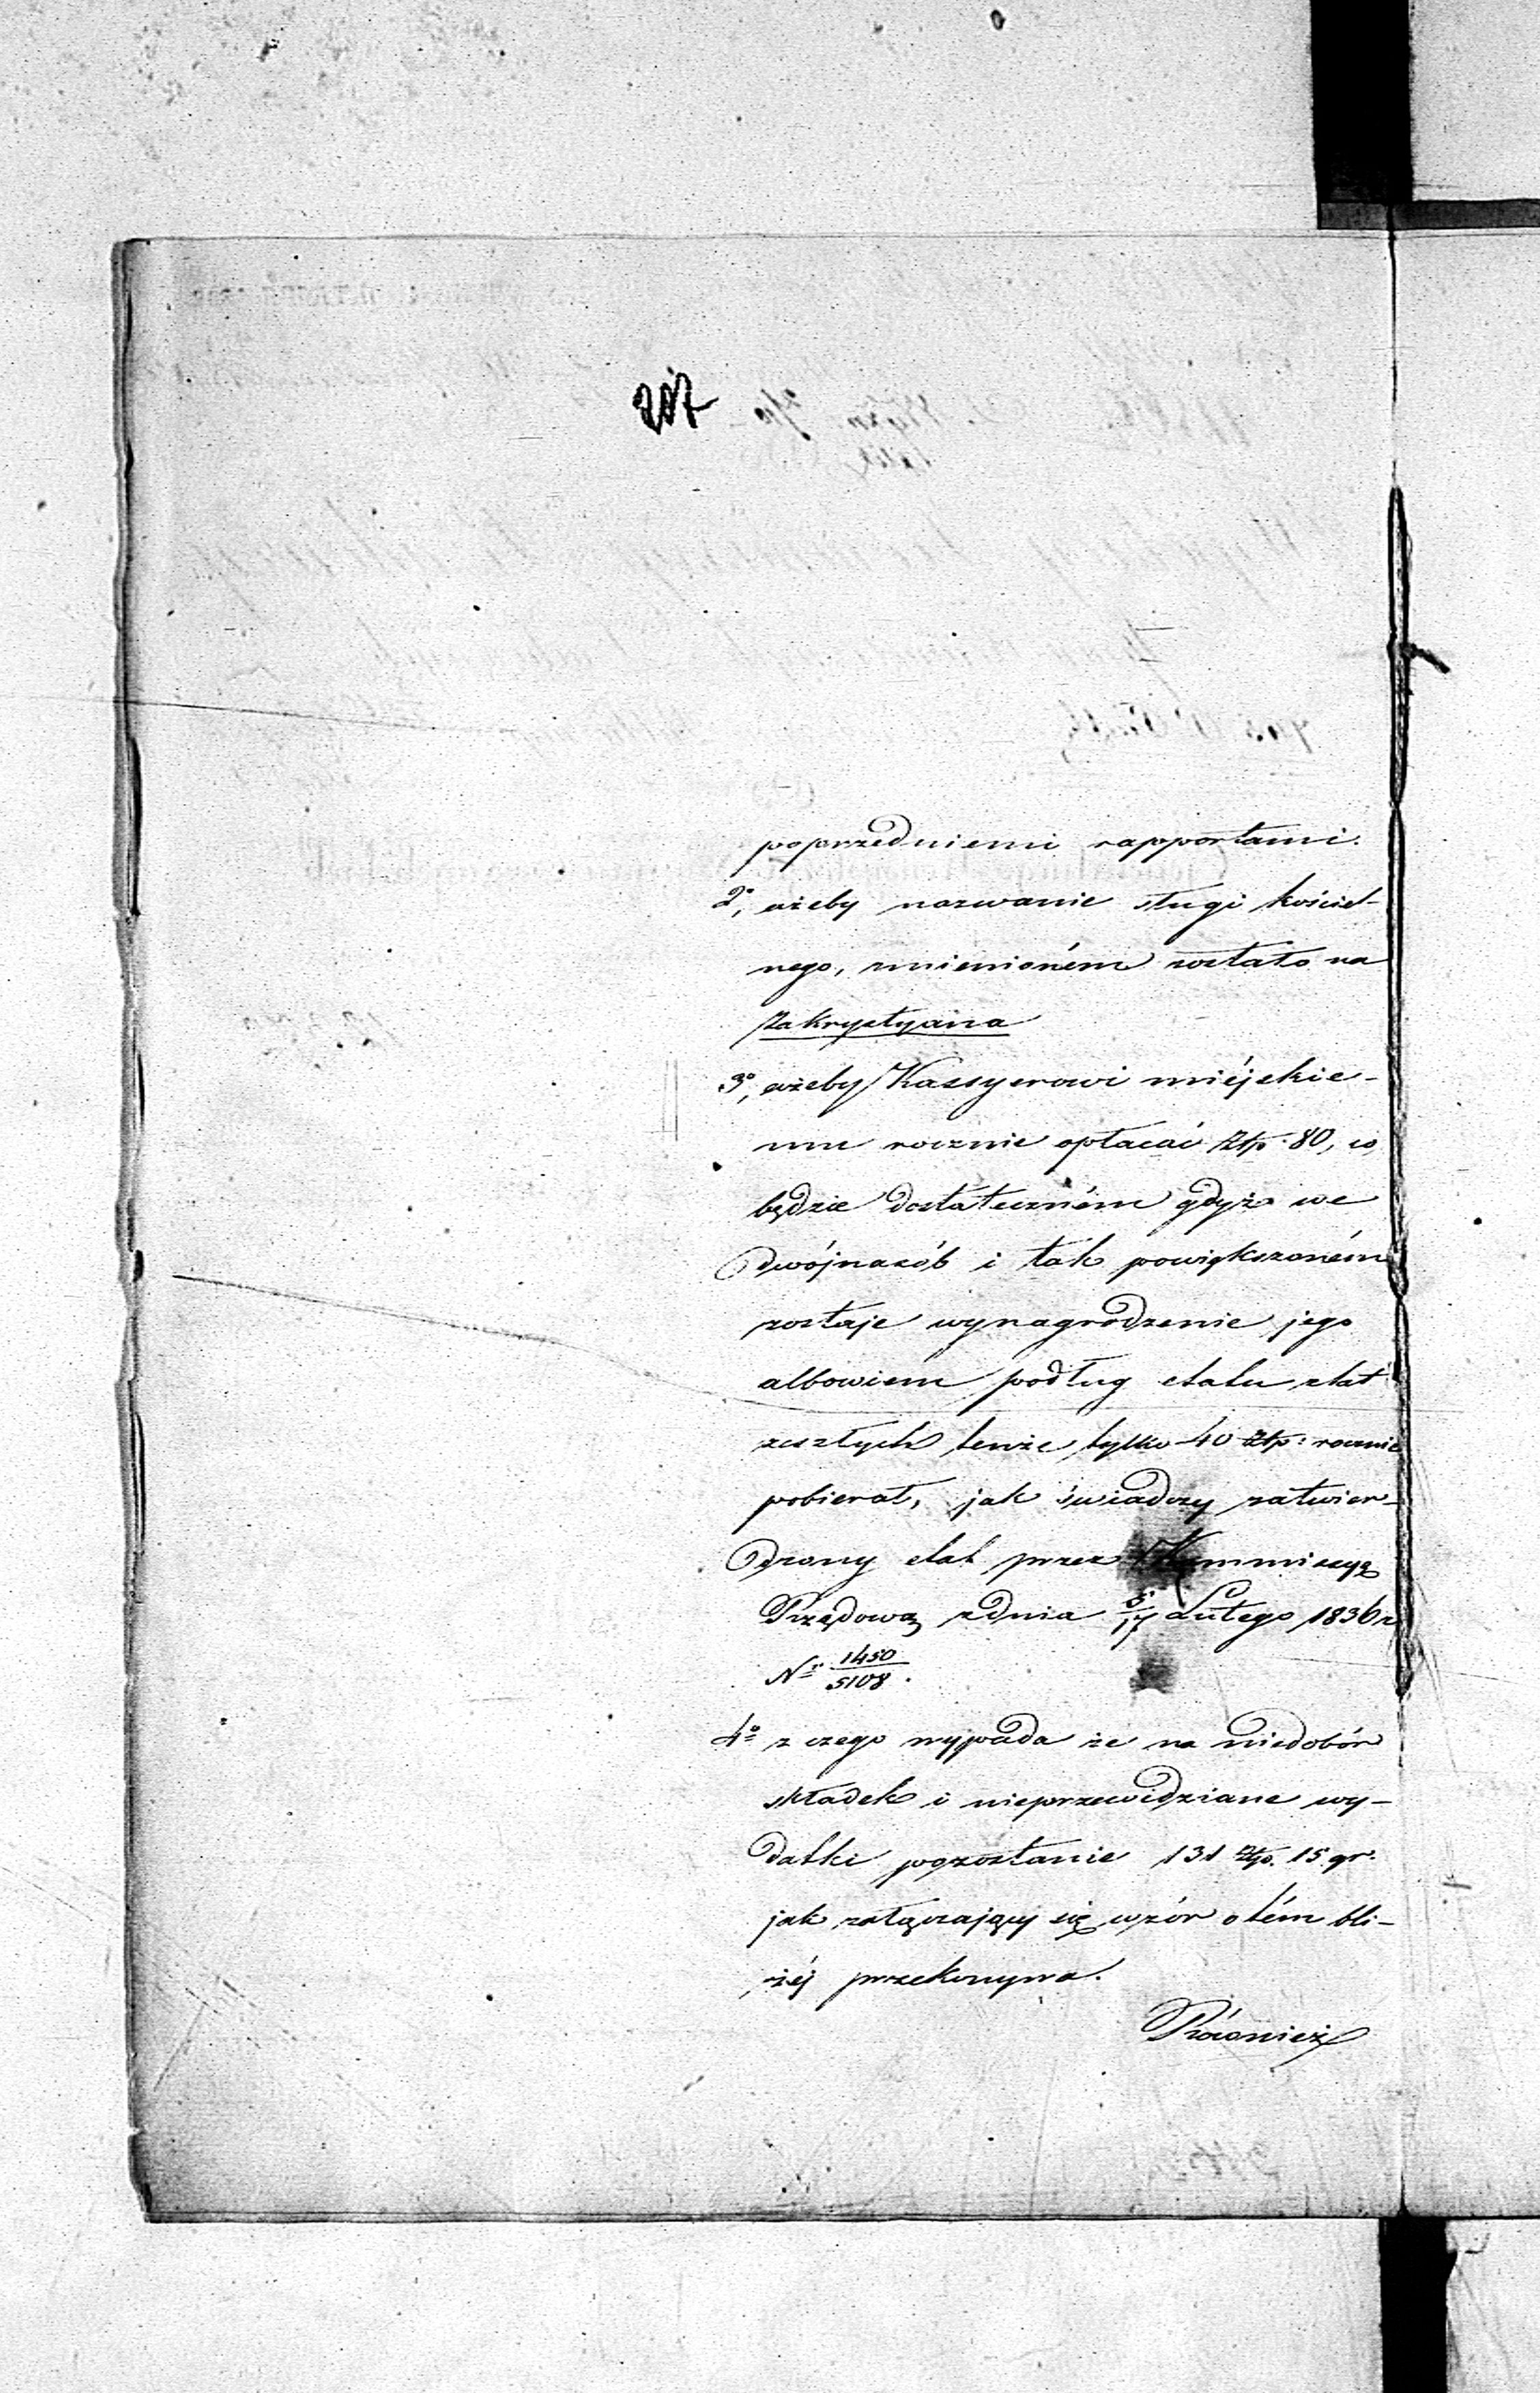 207
poprzedniemi rapportami.
2°, ażeby nazwanie sługi kościel-
nego, zmienioném zostało na
Zakrystyana
3°, ażeby Kassyerowi miéjskie-
mu rocznie opłacać Złp. 80, co
będzie dostateczném gdyż we
dwójnasób i tak powiększoném
zostaje wynagrodzenie jego
albowiem podług etatu z lat
zeszłych tenże tylko 40 Złp: rocznie
pobierał, jak świadczy zatwier-
dzony etat przez Kommissyą
Rządową z dnia 5/17 Lutego 1836 r.
Nr. 1450/5108.
4° z czego wypada że na niedobór
składek i nieprzewidziane wy-
datki pozostanie 131 Złp. 15 gr.
jak załączający się wzór o tém bli-
żéj przekonywa.
Również